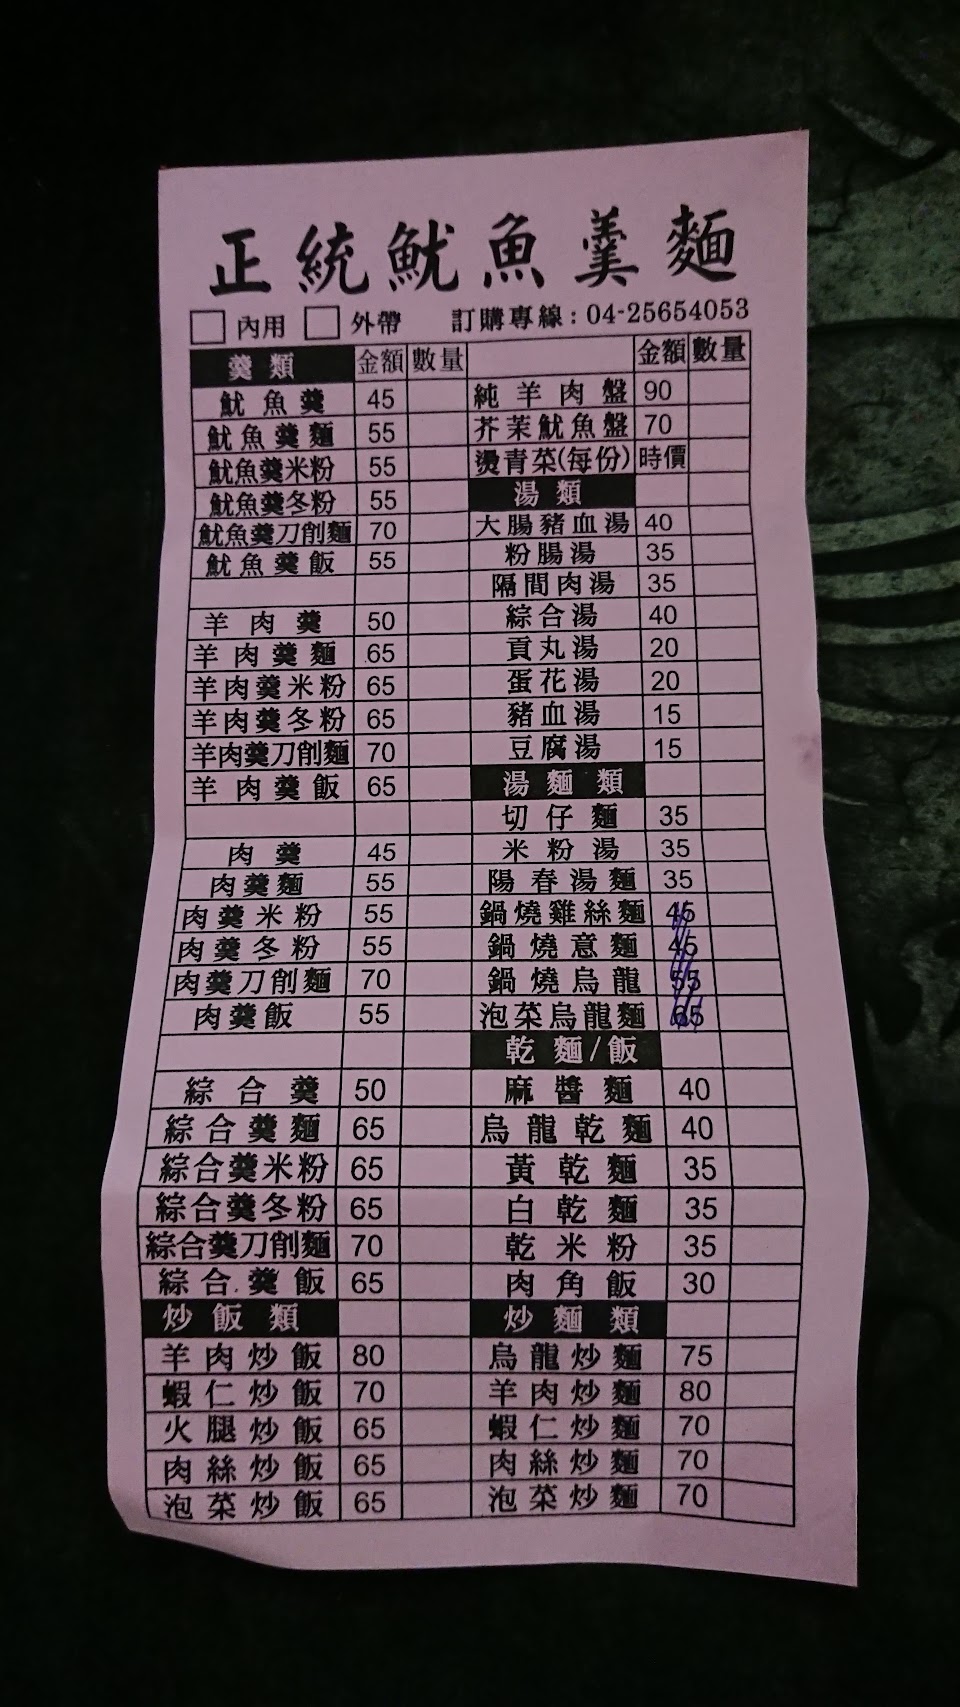 正統魷魚羹麵
內用 外帶 訂購專線：04-25654053
羹類 金額 數量 金額 數量
魷魚羹 45 純羊肉盤 90
魷魚羹麵 55 芥茉魷魚盤 70
魷魚羹米粉 55 燙青菜(每份) 時價
魷魚羹冬粉 55 湯類
魷魚羹刀削麵 70 大腸豬血湯 40
魷魚羹飯 55 粉腸湯 35
隔間肉湯 35
羊肉羹 50 綜合湯 40
羊肉羹麵 65 貢丸湯 20
羊肉羹米粉 65 蛋花湯 20
羊肉羹冬粉 65 豬血湯 15
羊肉羹刀削麵 70 豆腐湯 15
羊肉羹飯 65 湯麵類
切仔麵 35
肉羹 45 米粉湯 35
肉羹麵 55 陽春湯麵 35
肉羹米粉 55 鍋燒雞絲麵 45
肉羹冬粉 55 鍋燒意麵 45
肉羹刀削麵 70 鍋燒烏龍 55
肉羹飯 55 泡菜烏龍麵 65
乾麵/飯
綜合羹 50 麻醬麵 40
綜合羹麵 65 烏龍乾麵 40
綜合羹米粉 65 黃乾麵 35
綜合羹冬粉 65 白乾麵 35
綜合羹刀削麵 70 乾米粉 35
綜合羹飯 65 肉角飯 30
炒飯類 炒麵類
羊肉炒飯 80 烏龍炒麵 75
蝦仁炒飯 70 羊肉炒麵 80
火腿炒飯 65 蝦仁炒麵 70
肉絲炒飯 65 肉絲炒麵 70
泡菜炒飯 65 泡菜炒麵 70